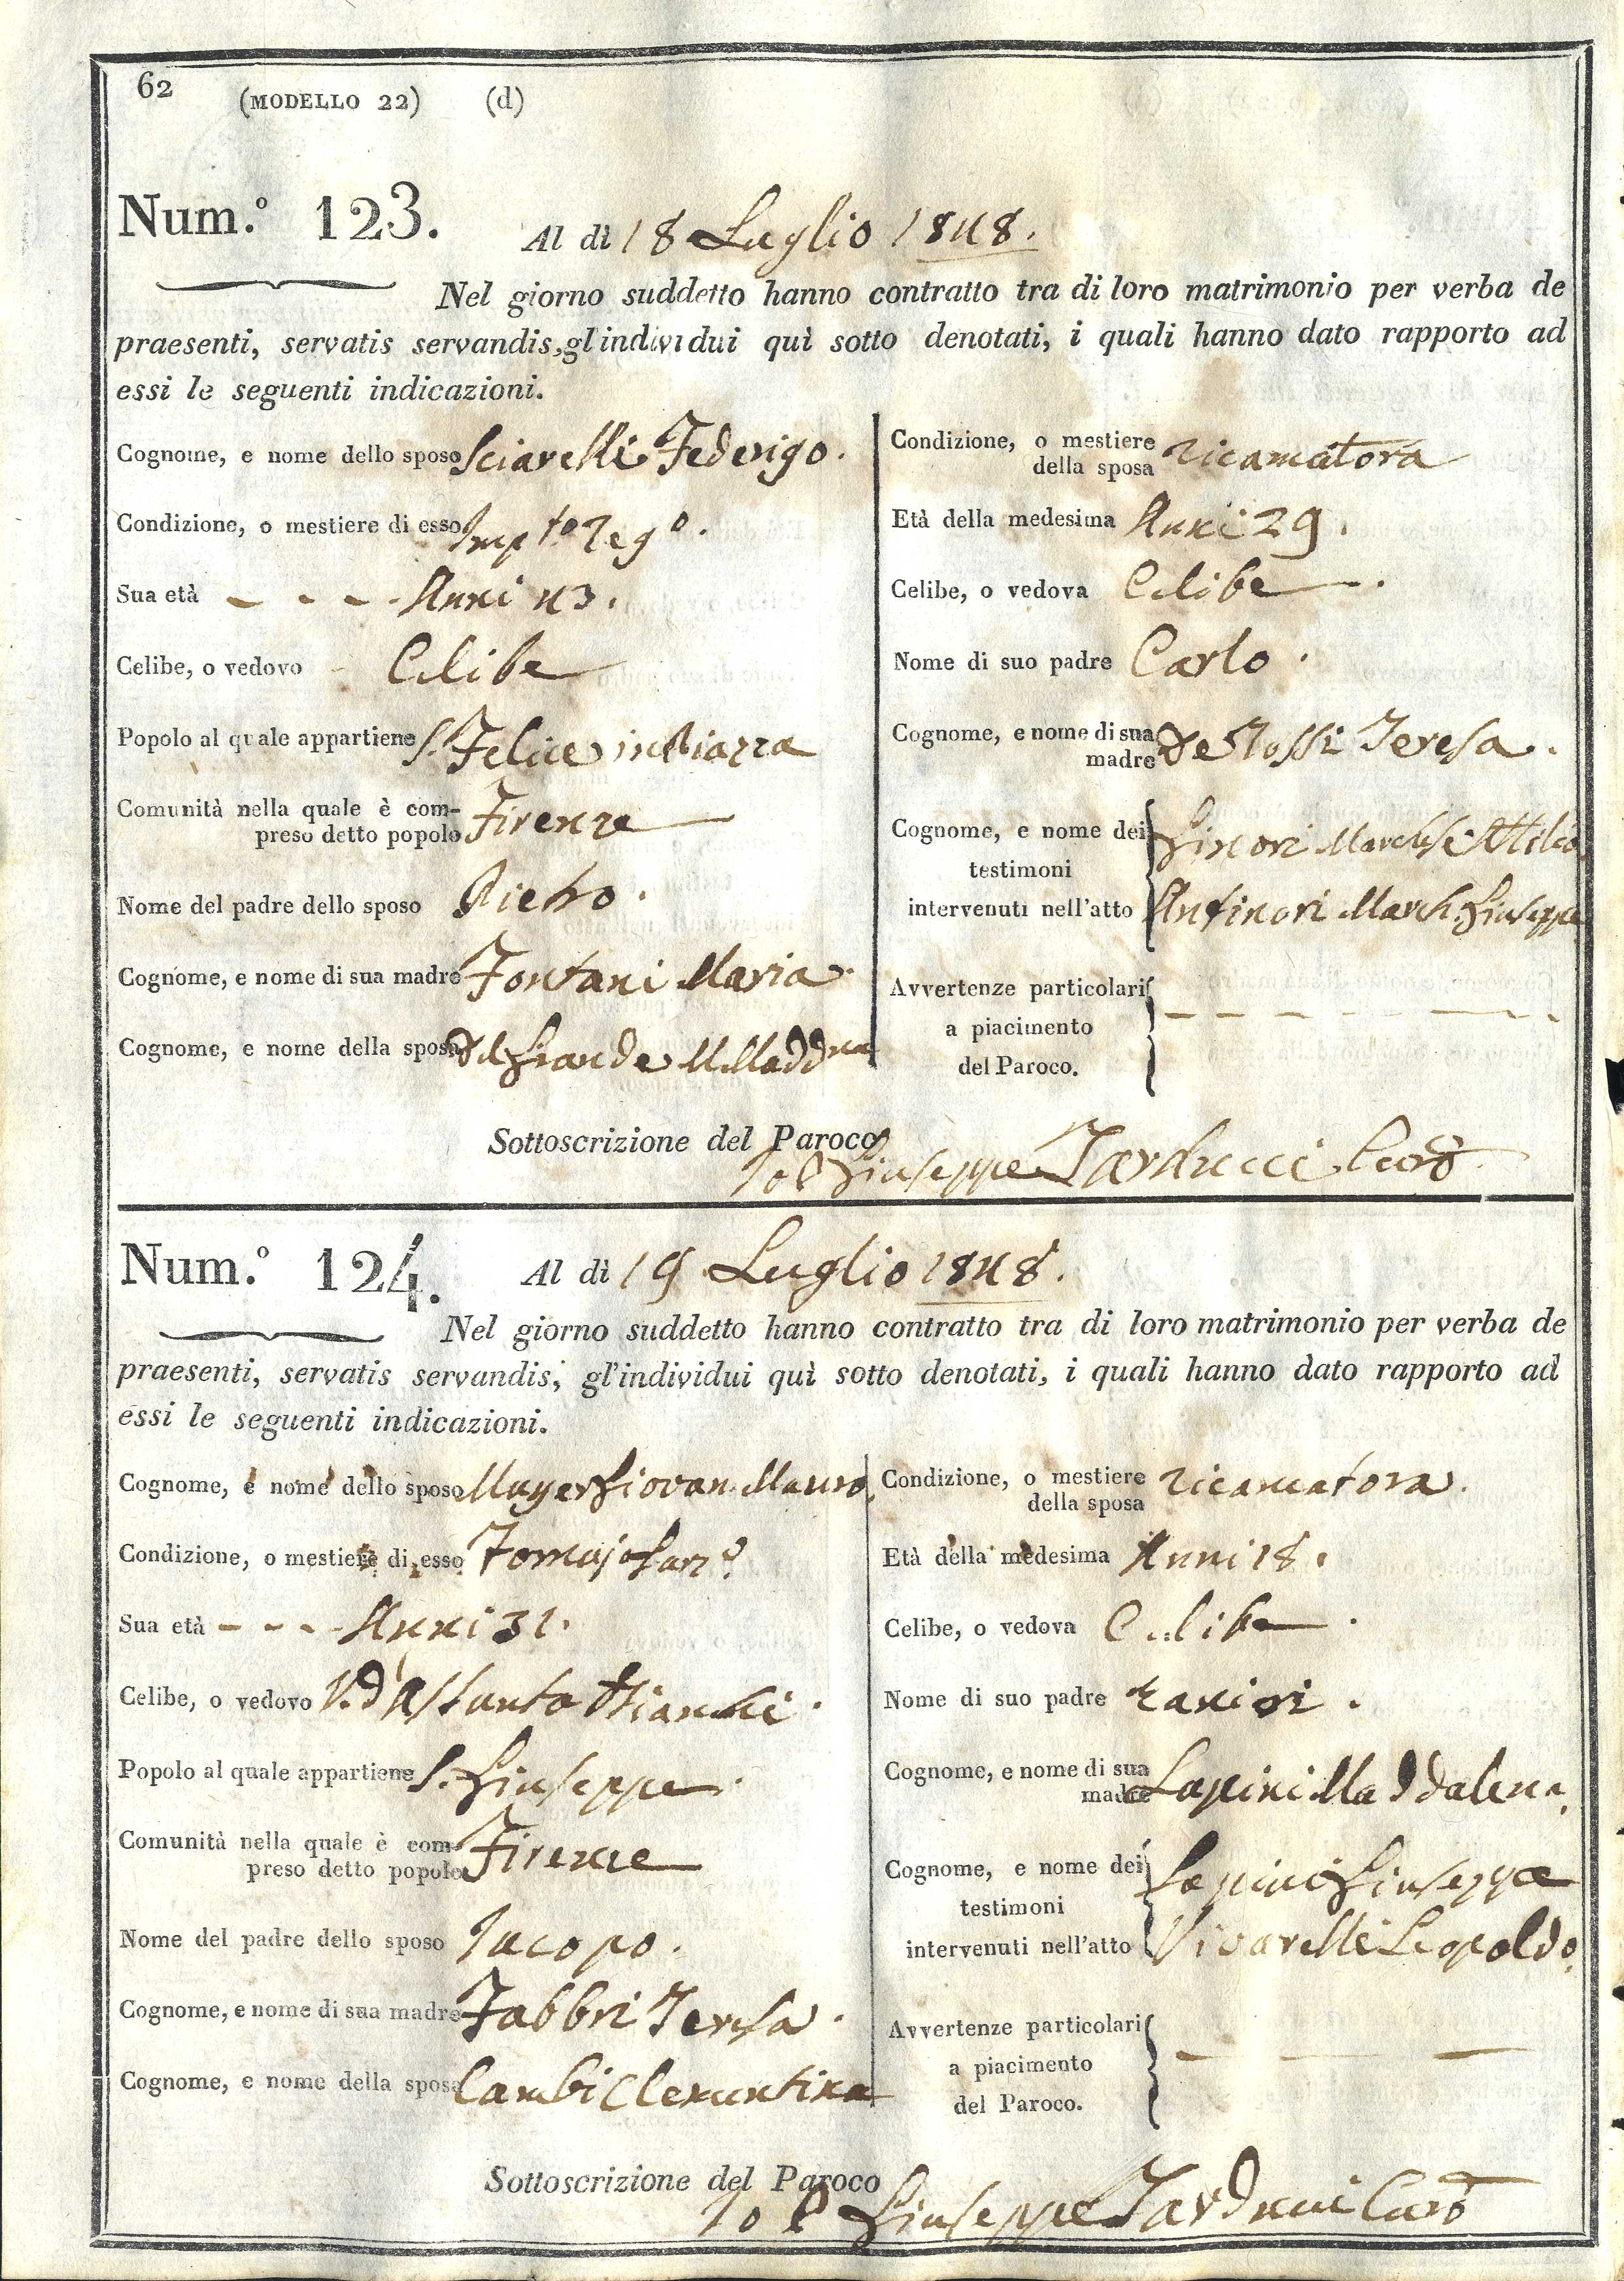 62
(MODELLO 22) (d)
Num.° 123. Al dì 18 Luglio 1848.
Nel giorno suddetto hanno contratto tra di loro matrimonio per verba de
praesenti, servatis servandis, gl'individui quì sotto denotati, i quali hanno dato rapporto ad
essi le seguenti indicazioni.
Cognome, e nome dello sposo Sciarelli Federigo.
Condizione, o mestiere di esso Imp.to Reg.o.
Sua età - - - - Anni 43.
Celibe, o vedovo - Celibe
Popolo al quale appartiene S. Felice in Piazza
Comunità nella quale è com-
preso detto popolo Firenze
Nome del padre dello sposo Pietro.
Cognome, e nome di sua madre Fontani Maria.
Cognome, e nome della sposa Del Grande M. Madd.na
Condizione, o mestiere
della sposa ricamatora
Età della medesima Anni 29.
Celibe, o vedova Celibe.
Nome di suo padre Carlo.
Cognome, e nome di sua
madre De Rossi Teresa.
Cognome, e nome dei Ginori Marchse Attilio
testimoni
intervenuti nell'atto Antinori March. Giuseppe
Avvertenze particolari
a piacimento
del Paroco.
Sottoscrizione del Paroco
Io P Giuseppe Tarducci Curo
Num.° 124. Al dì 19 Luglio 1848.
Nel giorno suddetto hanno contratto tra di loro matrimonio per verba de
praesenti, servatis servandis, gl'individui quì sotto denotati, i quali hanno dato rapporto ad
essi le seguenti indicazioni.
Cognome, e nome dello sposo Mayer Giovan. Mauro.
Condizione, o mestiere di esso
Sua età - - - - Anni 31.
Celibe, o vedovo V. d'Assunta
Popolo al quale appartiene S. Giuseppe.
Comunità nella quale è com-
preso detto popolo Firenze
Nome del padre dello sposo Jacopo.
Cognome, e nome di sua madre Fabbri Teresa.
Cognome, e nome della sposa Cambi Clementina
Condizione, o mestiere
della sposa ricamatora.
Età della medesima Anni 18.
Celibe, o vedova Celibe.
Nome di suo padre ranieri.
Cognome, e nome di sua
madre Lapini Maddalena.
Cognome, e nome dei Lapini Giuseppe
testimoni
intervenuti nell'atto Vivarelli Leopoldo.
Avvertenze particolari
a piacimento
del Paroco.
Sottoscrizione del Paroco
Io P Giuseppe Tarducci Curo